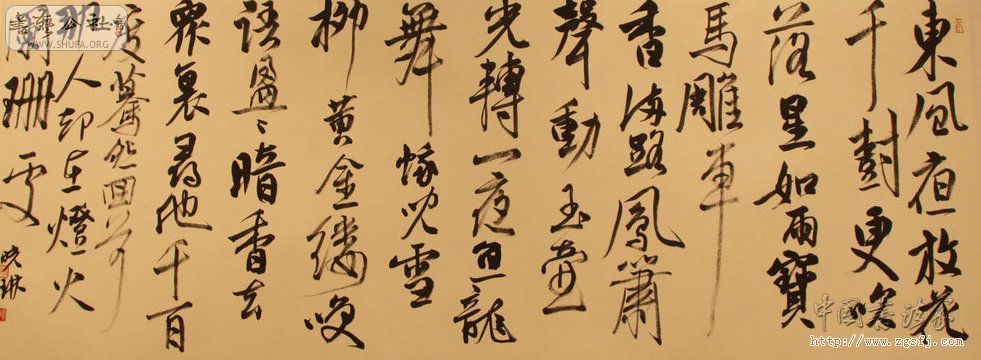 東風夜放花
千樹更吹
落星如雨寶
馬雕車
香滿路鳳簫
聲動玉壺
光轉一夜魚龍
舞蛾兒雪
柳黃金縷笑
語盈〻暗香去
衆裏尋他千百
度驀然回首
那人却在燈火
闌珊處
晓琳
WWW.SHUFA.ORG
http://www.zgsfj.com